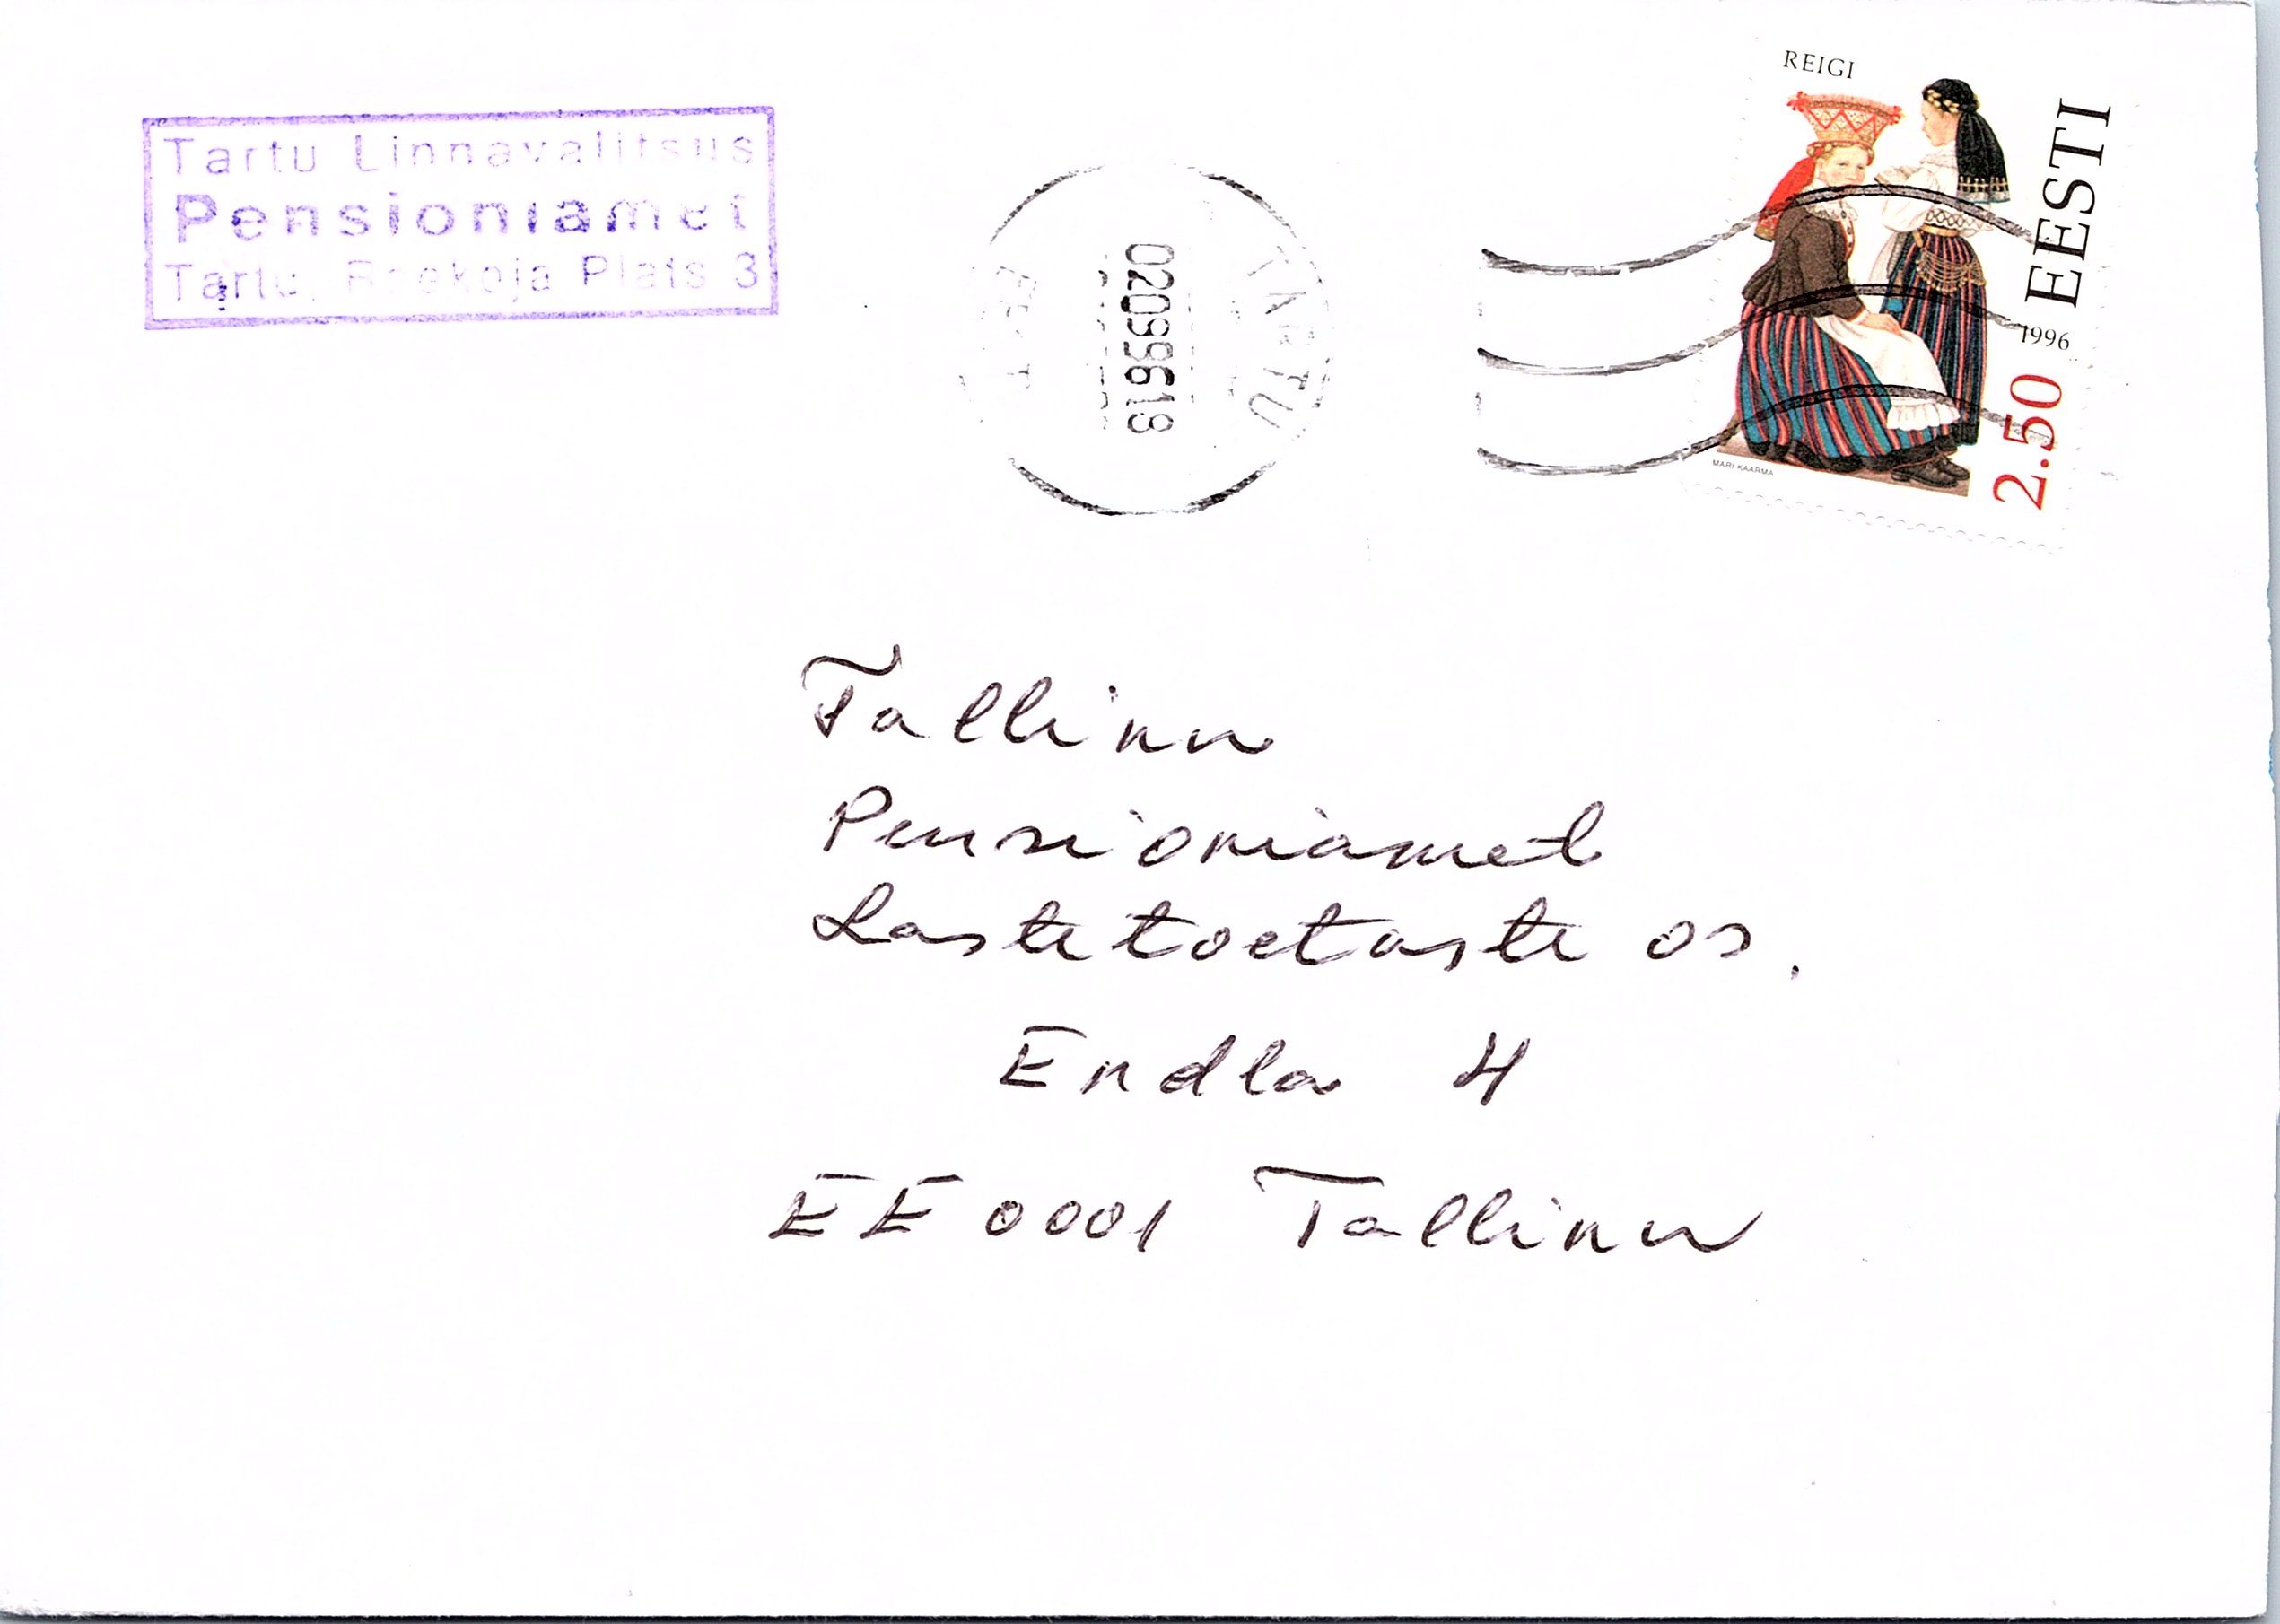 Tartu Linnavalitsus
Pensioniamet
Tartu, Raekoja Plats 3
EESTI
02099618
TARTU
REIGI
EESTI
1996
2.50
MARI KAARMA
Tallinn
Pensioniamet
Lastetoetuste os.
Endla 4
EE0001 Tallinn